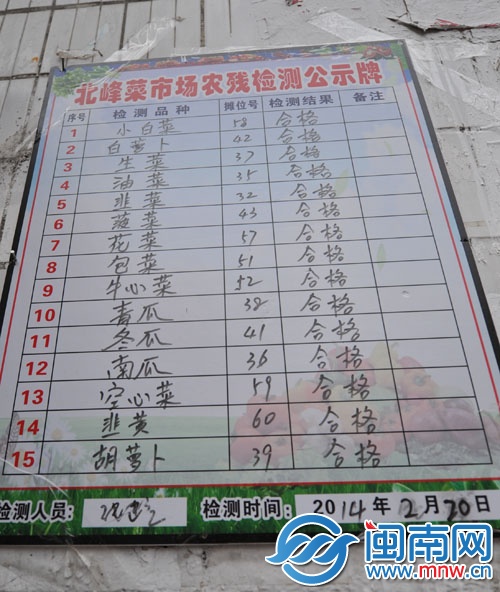 北峰菜市场农残检测公示牌
序号 检测品种 摊位号 检测结果 备注
1 小白菜 58 合格
2 白萝卜 42 合格
3 生菜 37 合格
4 油菜 35 合格
5 韭菜 32 合格
6 菠菜 43 合格
7 花菜 57 合格
8 包菜 51 合格
9 牛心菜 52 合格
10 青瓜 38 合格
11 冬瓜 41 合格
12 南瓜 36 合格
13 空心菜 59 合格
14 韭黄 60 合格
15 胡萝卜 39 合格
检测人员: 检测时间: 2014年2月20日
闽南网
www.mnw.cn